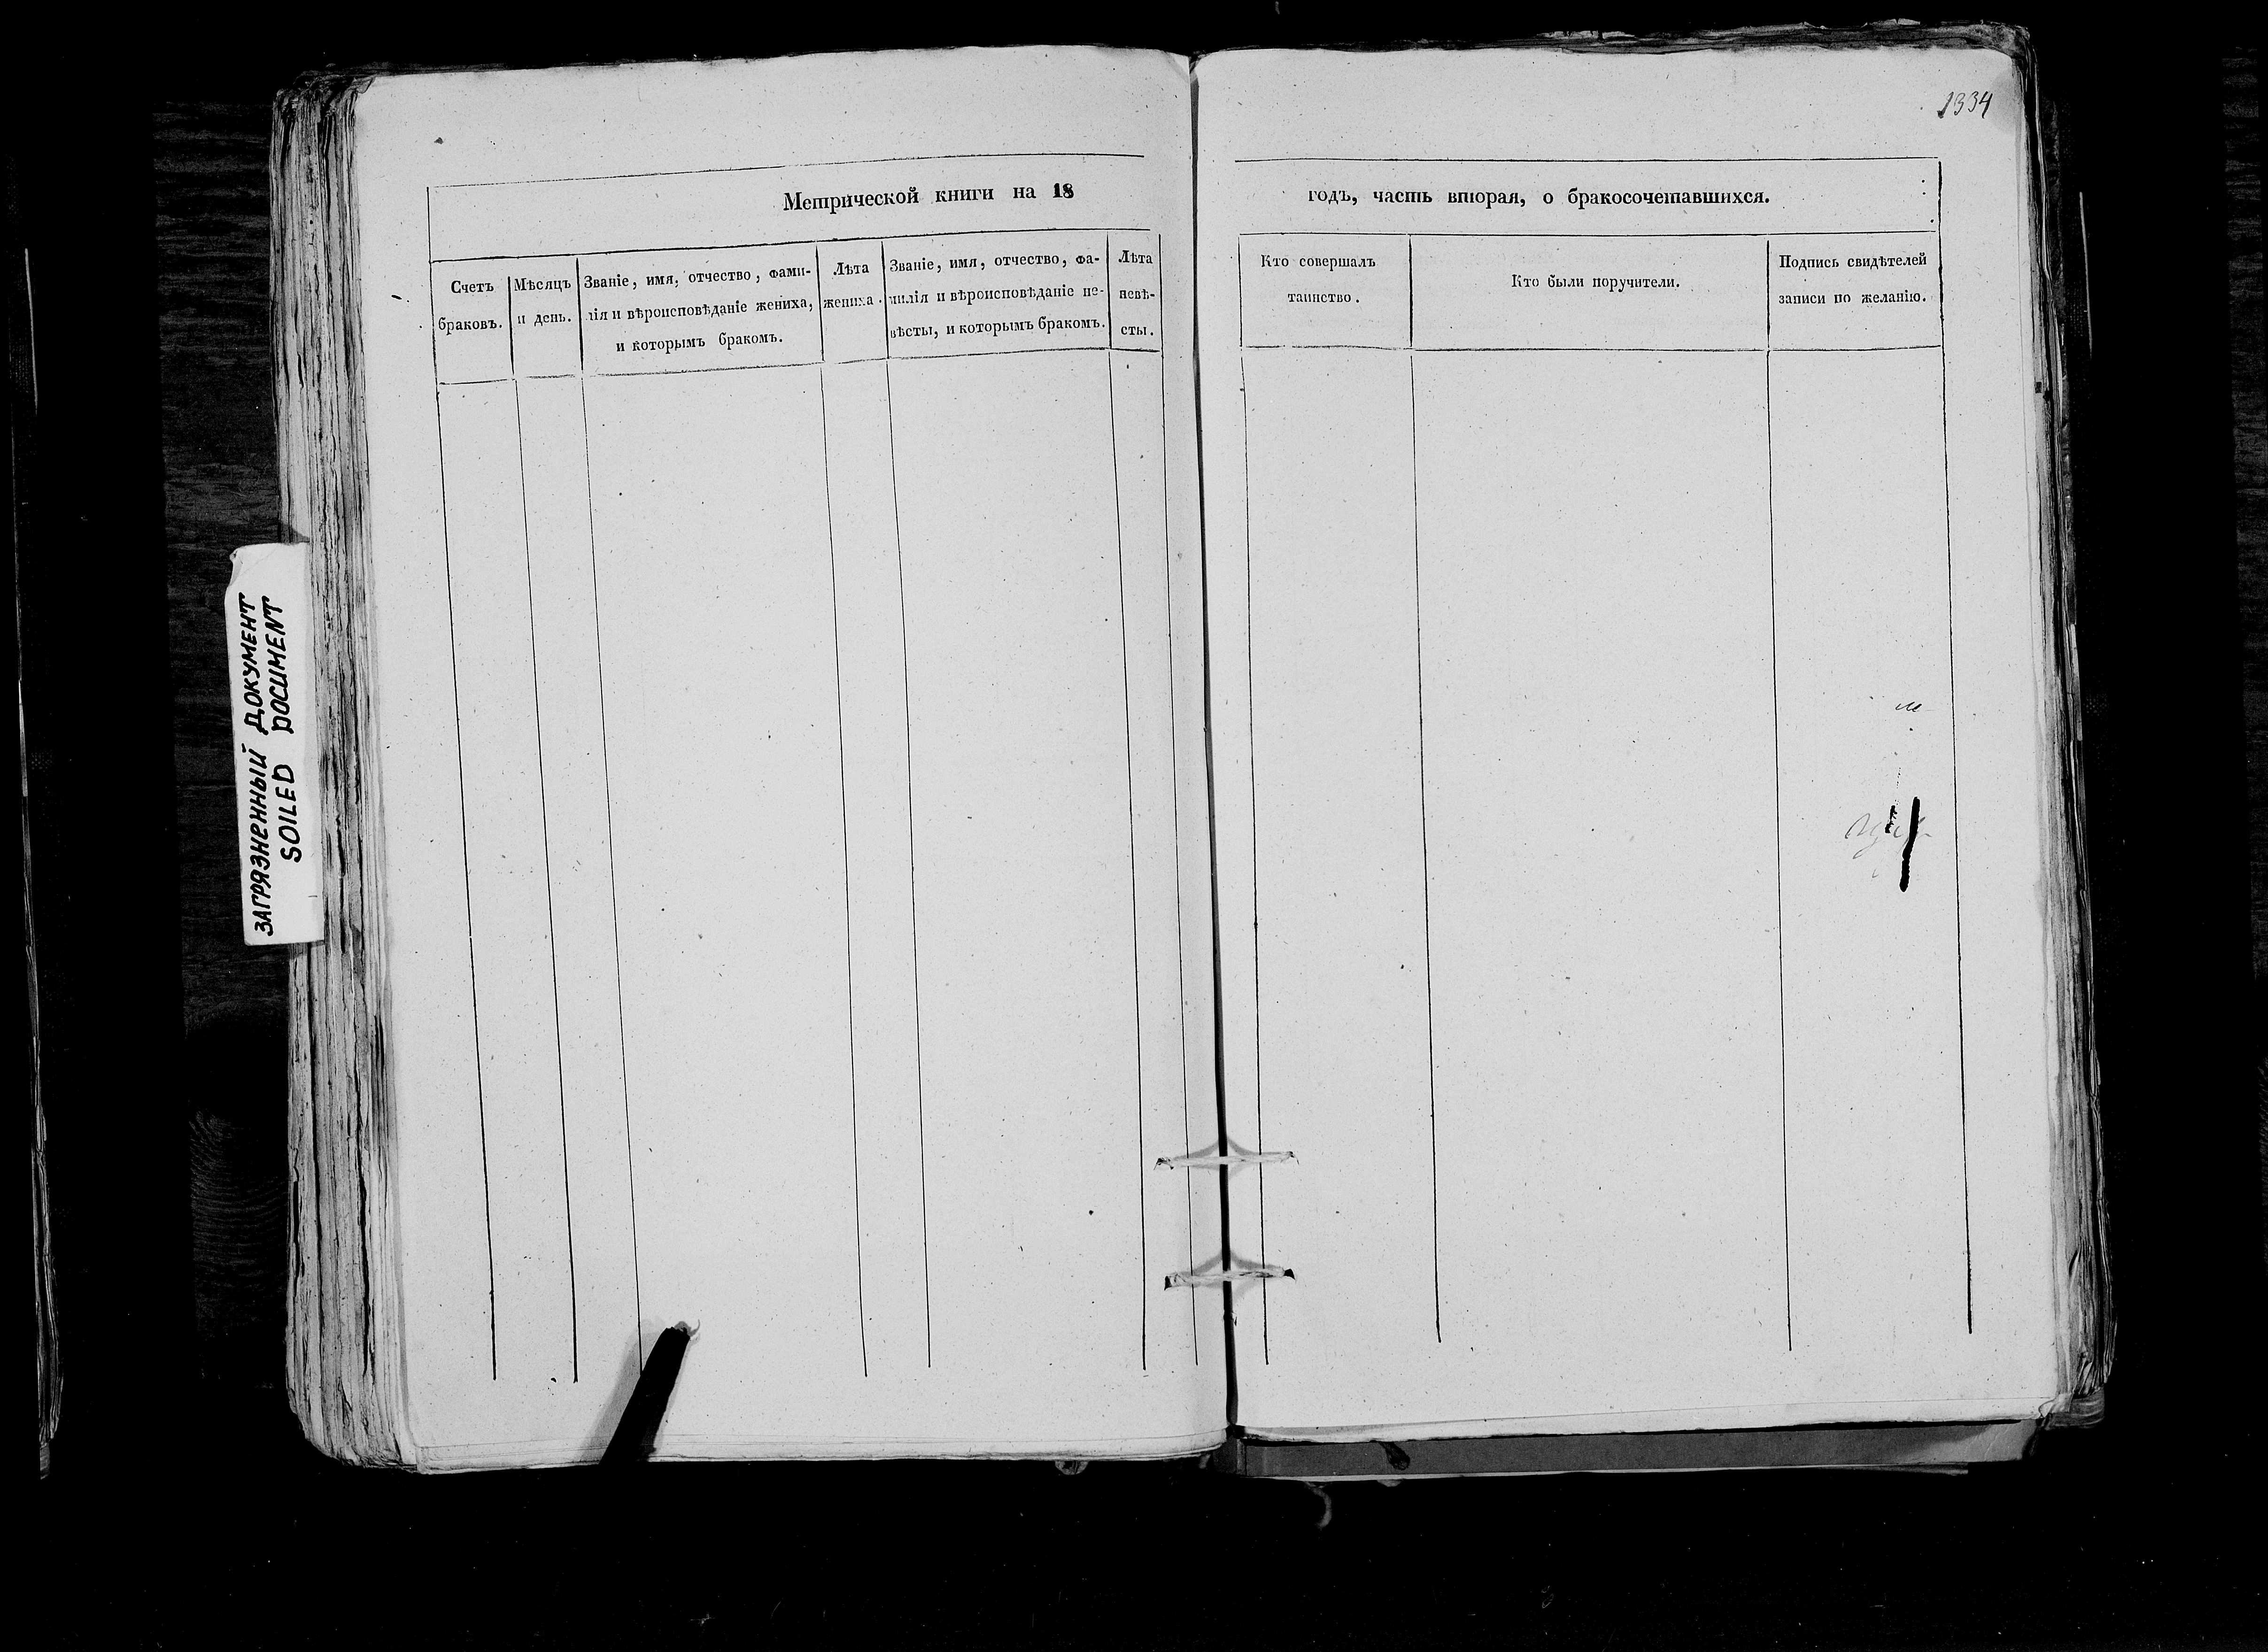 1334
Метрической книги на 18
годъ, часть вторая, о бракосочетавшихся.
Счетъ
браковъ.
Мѣсяцъ
и день.
Званіе, имя, отчество, фами-
лія и вѣроисповѣданіе жениха,
и которымъ бракомъ.
Лѣта
жениха.
Званіе, имя, отчество, фа-
милія и вѣроисповѣданіе не-
вѣсты, и которымъ бракомъ.
Лѣта
невѣ-
сты.
Кто совершалъ
таинство.
Кто были поручители.
Подпись свидѣтелей
записи по желанію.
ЗАГРЯЗНЕННЫЙ ДОКУМЕНТ
SOILED DOCUMENT